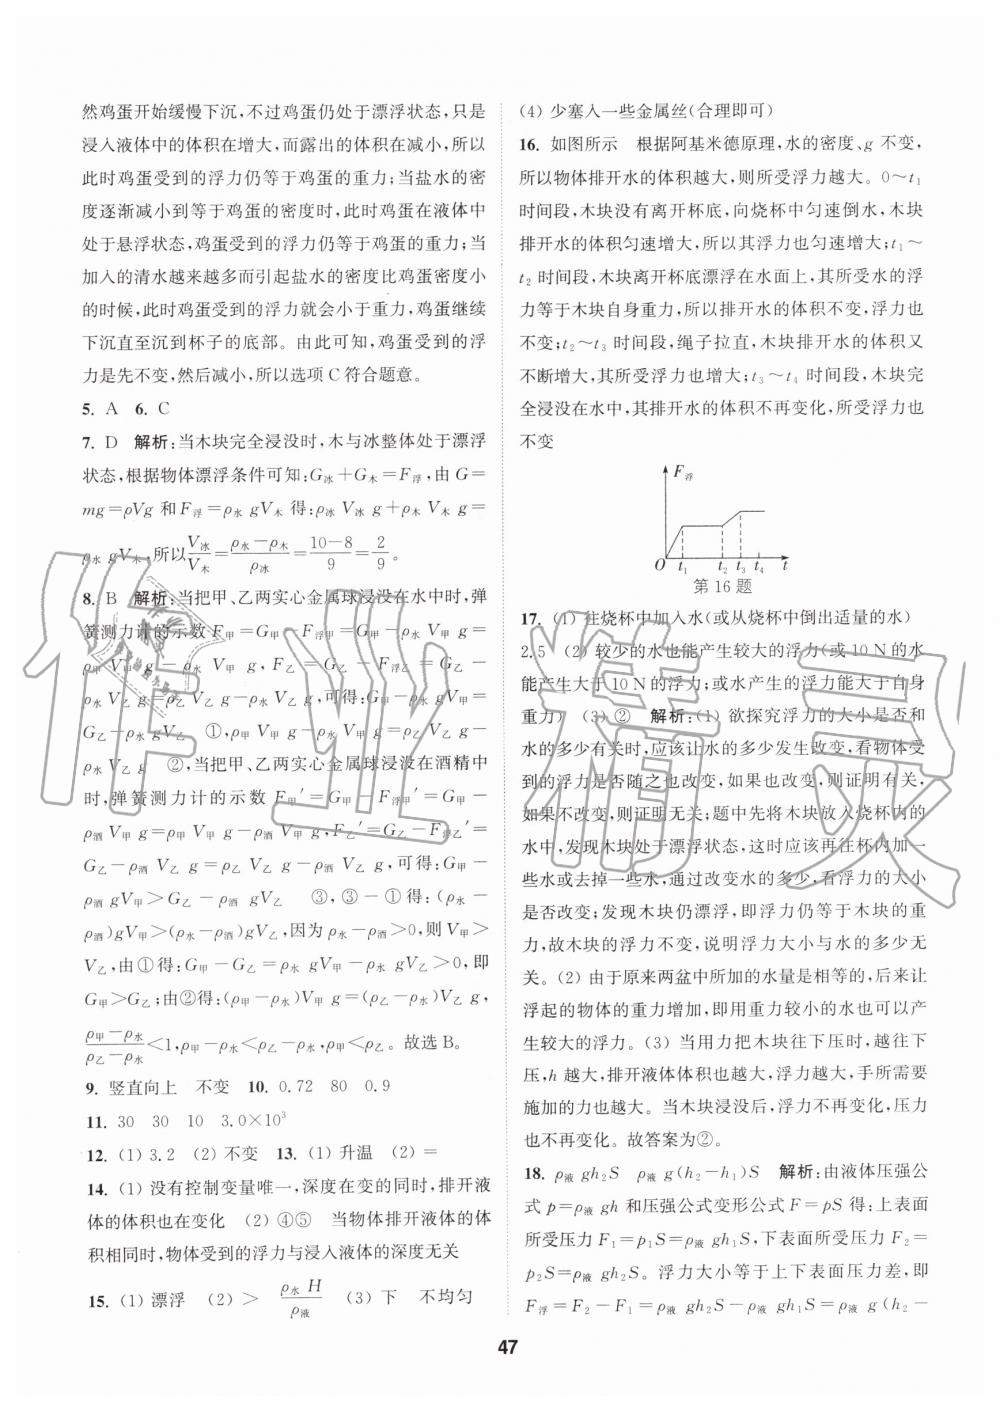 然鸡蛋开始缓慢下沉,不过鸡蛋仍处于漂浮状态,只是
浸入液体中的体积在增大,而露出的体积在减小,所以
此时鸡蛋受到的浮力仍等于鸡蛋的重力;当盐水的密
度逐渐减小到等于鸡蛋的密度时,此时鸡蛋在液体中
处于悬浮状态,鸡蛋受到的浮力仍等于鸡蛋的重力;当
加入的清水越来越多而引起盐水的密度比鸡蛋密度小
的时候,此时鸡蛋受到的浮力就会小于重力,鸡蛋继续
下沉直至沉到杯子的底部。由此可知,鸡蛋受到的浮
力是先不变,然后减小,所以选项C符合题意。
5. A 6. C
7. D 解析:当木块完全浸没时,木与冰整体处于漂浮
状态,根据物体漂浮条件可知:G冰+G木=F浮,由 G=
mg=ρVg 和 F浮=ρ水 gV木 得:ρ冰 V冰 g+ρ木 V木 g=
ρ水 gV木,所以V冰/V木=(ρ水-ρ木)/ρ冰=(10-8)/9=2/9。
8. B 解析:当把甲、乙两实心金属球浸没在水中时,弹
簧测力计的示数 F甲=G甲-F浮甲=G甲-ρ水 V甲 g=
ρ甲 V甲 g-ρ水 V甲 g,F乙=G乙-F浮乙=G乙-
ρ水 V乙 g=ρ乙 V乙 g-ρ水 V乙 g,可得:G甲-ρ水 gV甲=
G乙-ρ水 gV乙 ①,ρ甲 V甲 g-ρ水 V甲 g=ρ乙 V乙 g-
ρ水 V乙 g ②,当把甲、乙两实心金属球浸没在酒精中
时,弹簧测力计的示数 F甲′=G甲-F浮甲′=G甲-
ρ酒 V甲 g=ρ甲 V甲 g-ρ酒 V甲 g,F乙′=G乙-F浮乙′=
G乙-ρ酒 V乙 g=ρ乙 V乙 g-ρ酒 V乙 g,可得:G甲-
ρ酒 gV甲>G乙-ρ酒 gV乙 ③,③-①得:(ρ水-
ρ酒)gV甲>(ρ水-ρ酒)gV乙,因为 ρ水-ρ酒>0,则 V甲>
V乙,由①得:G甲-G乙=ρ水 gV甲-ρ水 gV乙>0,即
G甲>G乙;由②得:(ρ甲-ρ水)V甲 g=(ρ乙-ρ水)V乙 g,
(ρ甲-ρ水)/(ρ乙-ρ水)<1,ρ甲-ρ水<ρ乙-ρ水,ρ甲<ρ乙。故选 B。
9. 竖直向上 不变 10. 0.72 80 0.9
11. 30 30 10 3.0×10³
12. (1) 3.2 (2) 不变 13. (1) 升温 (2) =
14. (1) 没有控制变量唯一,深度在变的同时,排开液
体的体积也在变化 (2) ④⑤ 当物体排开液体的体
积相同时,物体受到的浮力与浸入液体的深度无关
15. (1) 漂浮 (2) > ρ水 H/ρ液 (3) 下 不均匀
(4) 少塞入一些金属丝(合理即可)
16. 如图所示 根据阿基米德原理,水的密度、g 不变,
所以物体排开水的体积越大,则所受浮力越大。0～t₁
时间段,木块没有离开杯底,向烧杯中匀速倒水,木块
排开水的体积匀速增大,所以其浮力也匀速增大;t₁～
t₂ 时间段,木块离开杯底漂浮在水面上,其所受水的浮
力等于木块自身重力,所以排开水的体积不变,浮力也
不变;t₂～t₃ 时间段,绳子拉直,木块排开水的体积又
不断增大,其所受浮力也增大;t₃～t₄ 时间段,木块完
全浸没在水中,其排开水的体积不再变化,所受浮力也
不变
F浮
O t₁ t₂ t₃ t₄ t
第16题
17. (1) 往烧杯中加入水(或从烧杯中倒出适量的水)
2.5 (2) 较少的水也能产生较大的浮力(或 10 N 的水
能产生大于 10 N 的浮力;或水产生的浮力能大于自身
重力) (3) ② 解析:(1) 欲探究浮力的大小是否和
水的多少有关时,应该让水的多少发生改变,看物体受
到的浮力是否随之也改变,如果也改变,则证明有关,
如果不改变,则证明无关;题中先将木块放入烧杯内的
水中,发现木块处于漂浮状态,这时应该再往杯内加一
些水或去掉一些水,通过改变水的多少,看浮力的大小
是否改变;发现木块仍漂浮,即浮力仍等于木块的重
力,故木块的浮力不变,说明浮力大小与水的多少无
关。(2) 由于原来两盆中所加的水量是相等的,后来让
浮起的物体的重力增加,即用重力较小的水也可以产
生较大的浮力。(3) 当用力把木块往下压时,此时越往
下压,h 越大,排开液体体积也越大,浮力越大,手所需要
施加的力也越大。当木块浸没后,浮力不再变化,压力
也不再变化。故答案为②。
18. ρ液 gh₂S ρ液 g(h₂-h₁)S 解析:由液体压强公
式 p=ρ液 gh 和压强公式变形公式 F=pS 得:上表面
所受压力 F₁=p₁S=ρ液 gh₁S,下表面所受压力 F₂=
p₂S=ρ液 gh₂S。浮力大小等于上下表面压力差,即
F浮=F₂-F₁=ρ液 gh₂S-ρ液 gh₁S=ρ液 g(h₂-
47
作业精灵